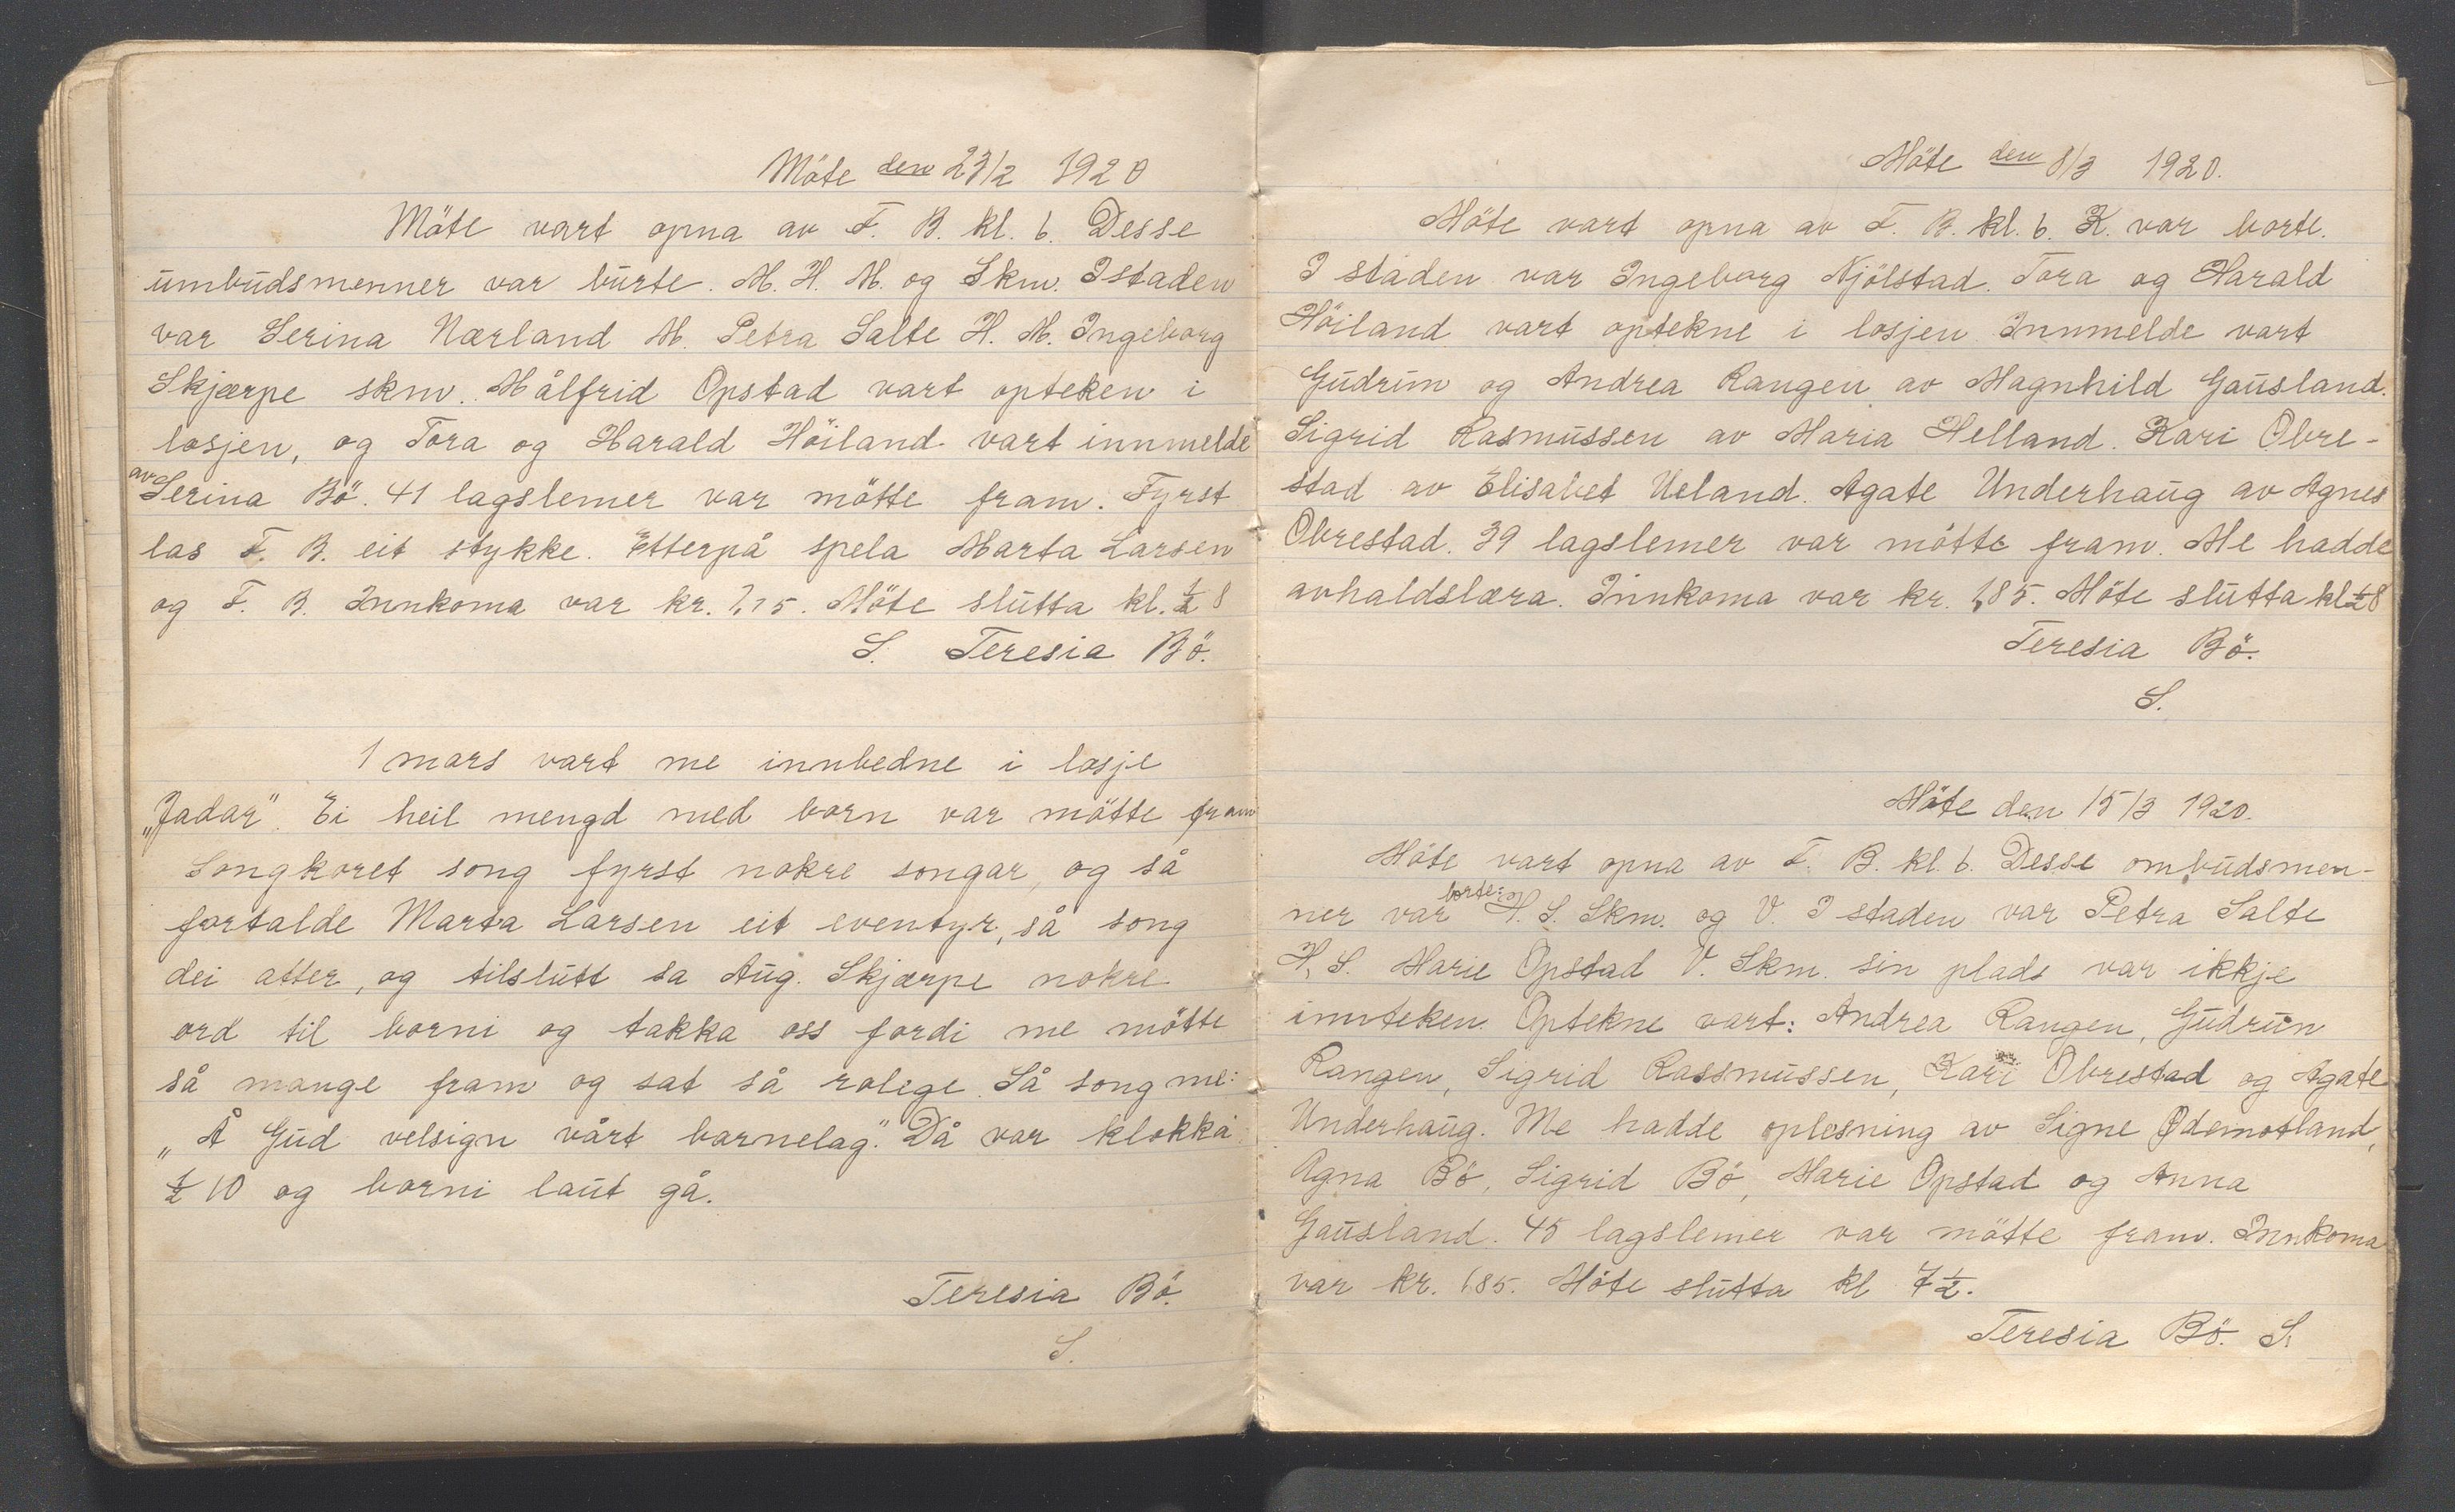 Möte den 23/2 1920
Möte vart opna av F. B. kl. 6. Desse
umbudsmenner var burte. M. H. M. og Skm. Istaden
var Serina Nærland M. Petra Salte H. M. Ingeborg
Skjærpe skm. Målfrid Opstad vart opteken i
losjen, og Tora og Harald Höiland vart innmelde
av Serina Bö. 41 lagslemer var mötte fram. Fyrst
las F. B. eit stykke. Etterpå spela Marta Larsen
og F. B. Innkoma var kr. Möte slutta kl. ½ 8
S. Teresia Bö.
1 mars vart me innbedne i losje
„Jadar". Ei heil mengd med born var mötte fram
Songkoret song fyrst nokre songar, og så
fortalde Marta Larsen eit eventyr, så song
dei atter, og tilslutt sa Aug. Skjærpe nokre
ord til borni og takka oss fordi me mötte
så mange fram og sat så rolege. Så song me:
„Å Gud velsign vårt barnelag". Då var klokka
½ 10 og borni laut gå.
Teresia Bö.
S.
Möte den 8/3 1920.
Möte vart opna av F. B. kl. 6. K. var borte.
I staden var Ingeborg Njölstad. Tora og Harald
Höiland vart optekne i losjen. Innmelde vart
Gudrun og Andrea Rangen av Magnhild Gausland.
Sigrid Rasmussen av Maria Helland. Kari Obre-
stad av Elisabet Ueland. Agate Underhaug av Agnes
Obrestad. 39 lagslemer var mötte fram. Me hadde
avhaldslæra. Innkoma var kr. 1,85. Möte slutta kl ½ 8
Teresia Bö.
S.
Möte den 15/3 1920.
Möte vart opna av F. B. kl. 6. Desse ombudsmen-
ner var borte: H. S. Skm. og V. I staden var Petra Salte
H. S. Marie Opstad V. Skm. sin plads var ikkje
innteken. Optekne vart: Andrea Rangen, Gudrun
Rangen, Sigrid Rassmussen, Kari Obrestad og Agate
Underhaug. Me hadde oplesning av Signe Ødemotland,
Agna Bö, Sigrid Bö, Marie Opstad og Anna
Gausland. 45 lagslemer var mötte fram. Innkoma
var kr. 1,85. Möte slutta kl 7½.
Teresia Bö. S.